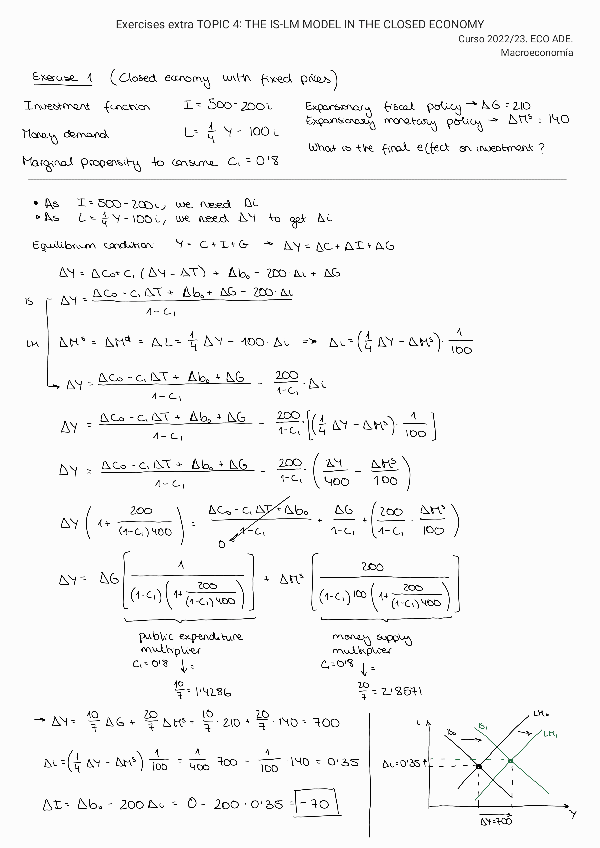 Exercises extra TOPIC 4: THE IS-LM MODEL IN THE CLOSED ECONOMY
Curso 2022/23. ECO ADE.
Macroeconomía
Exercise 1 (Closed economy with fixed prices)
Investment function I = 500 - 200i
Money demand L = 1/4 Y - 100i
Marginal propensity to consume C₁ = 0'8
Expansionary fiscal policy → ΔG = 210
Expansionary monetary policy → ΔMˢ = 140
What is the final effect on investment?
• As I = 500 - 200i, we need Δi
• As L = 1/4 Y - 100i, we need ΔY to get Δi
Equilibrium condition Y = C + I + G → ΔY = ΔC + ΔI + ΔG
ΔY = ΔC₀ + C₁ (ΔY - ΔT) + Δb₀ - 200 Δi + ΔG
IS ΔY = (ΔC₀ - C₁ΔT + Δb₀ + ΔG - 200·Δi) / (1 - C₁)
LM ΔMˢ = ΔMᵈ = ΔL = 1/4 ΔY - 100·Δi ⇒ Δi = (1/4 ΔY - ΔMˢ) · 1/100
ΔY = (ΔC₀ - C₁ΔT + Δb₀ + ΔG) / (1 - C₁) - 200/(1 - C₁) · Δi
ΔY = (ΔC₀ - C₁ΔT + Δb₀ + ΔG) / (1 - C₁) - 200/(1 - C₁) · [(1/4 ΔY - ΔMˢ) · 1/100]
ΔY = (ΔC₀ - C₁ΔT + Δb₀ + ΔG) / (1 - C₁) - 200/(1 - C₁) · (ΔY/400 - ΔMˢ/100)
ΔY (1 + 200/((1 - C₁)400)) = (ΔC₀ - C₁ΔT + Δb₀)/(1 - C₁) + ΔG/(1 - C₁) + (200/(1 - C₁) · ΔMˢ/100)
0
ΔY = ΔG [1 / ((1 - C₁)(1 + 200/((1 - C₁)400)))] + ΔMˢ [200 / ((1 - C₁)100 (1 + 200/((1 - C₁)400)))]
public expenditure multiplier
C₁ = 0'8 ↓ =
10/7 = 1'4286
money supply multiplier
C₁ = 0'8 ↓ =
20/7 = 2'8571
→ ΔY = 10/7 ΔG + 20/7 ΔMˢ = 10/7 · 210 + 20/7 · 140 = 700
Δi = (1/4 ΔY - ΔMˢ) 1/100 = 1/400 700 - 1/100 140 = 0'35
ΔI = Δb₀ - 200 Δi = 0 - 200 · 0'35 = -70
i
IS₀
IS₁
LM₀
LM₁
Δi = 0'35
ΔY = 700
Y